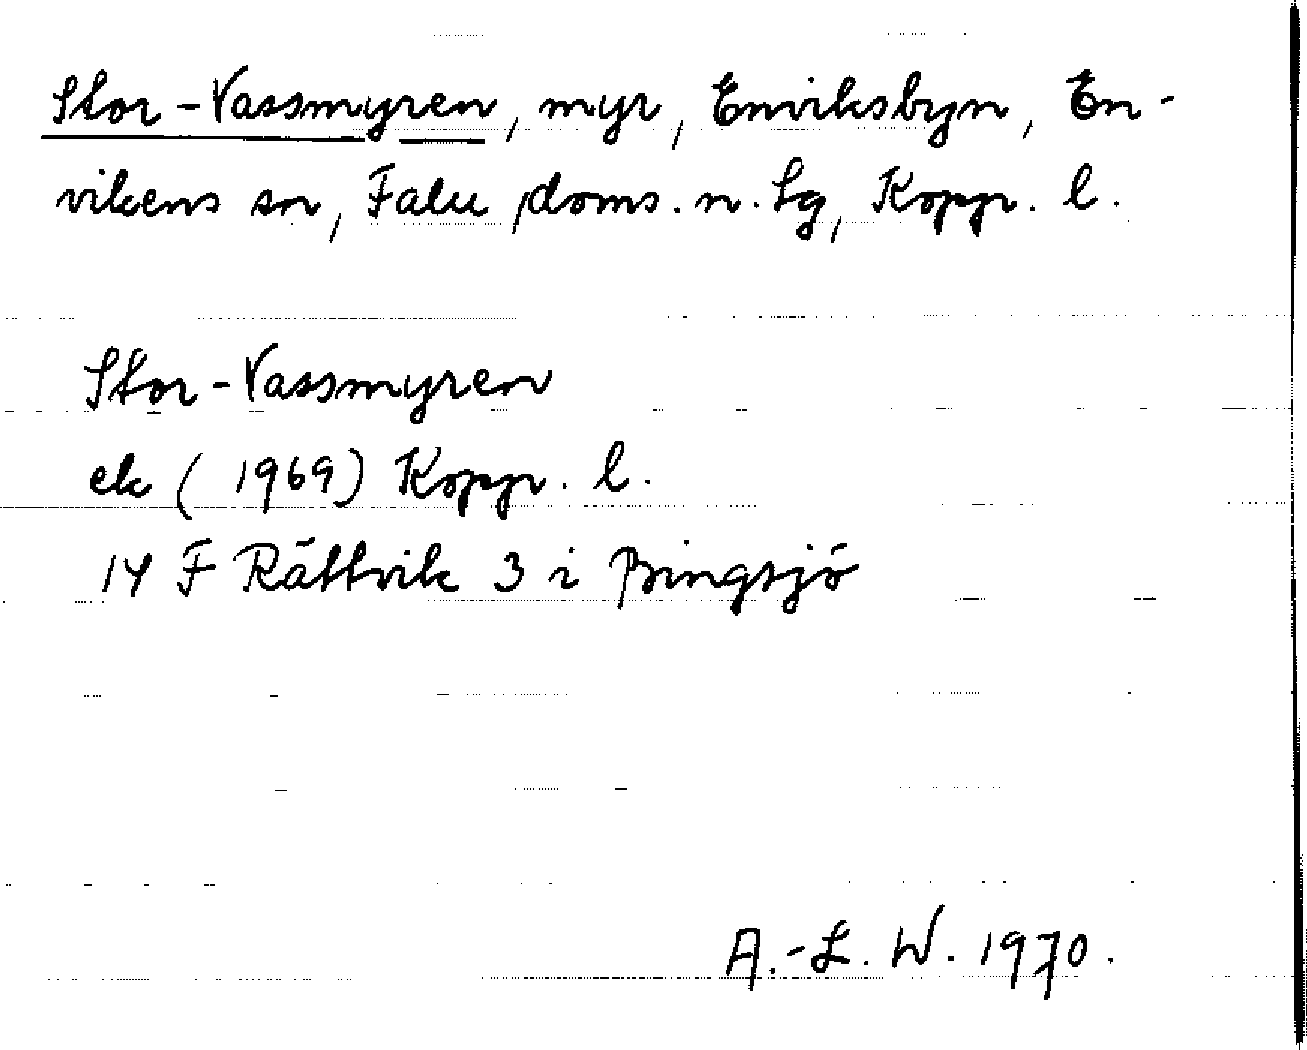 Stor-Vassmyren, myr, Enviksbyn, En-
vikens sn, Falu doms. n. tg, Kopp. l.
Stor-Vassmyren
ek (1969) Kopp. l.
14 F Rättvik 3 i Bingsjö
A.-L. W. 1970.